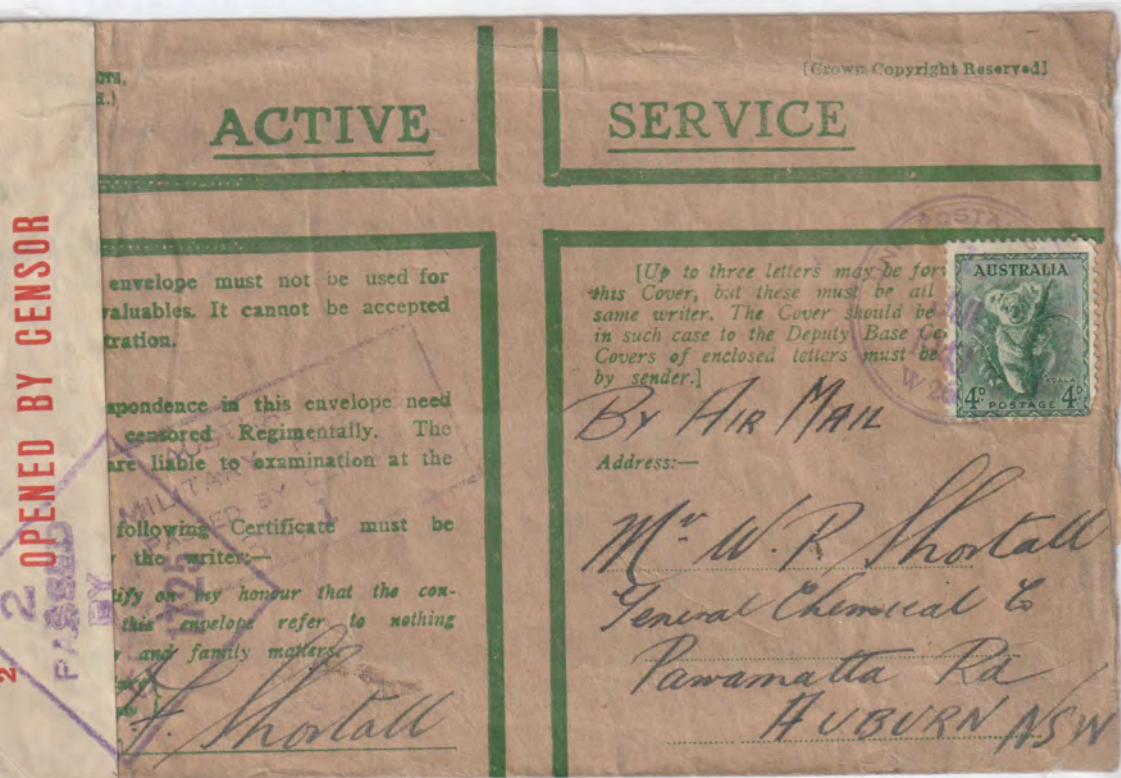 [Crown Copyright Reserved]
ACTIVE SERVICE
OPENED BY CENSOR
2
envelope must not be used for
valuables. It cannot be accepted
tration.
spondence in this envelope need
censored Regimentally. The
are liable to examination at the
following Certificate must be
the writer:—
tify on my honour that the con-
this envelope refer to nothing
and family matters.
F. Shortall
2
PASSED
BY
1725
MILITARY
BY
[Up to three letters may be for
this Cover, but these must be all
same writer. The Cover should be
in such case to the Deputy Base Ce
Covers of enclosed letters must be
by sender.]
AUSTRALIA
KOALA
4D POSTAGE 4D
By AIR MAIL
Address:—
Mr W. P. Shortall
General Chemical Co
Parramatta Rd
AUBURN NSW